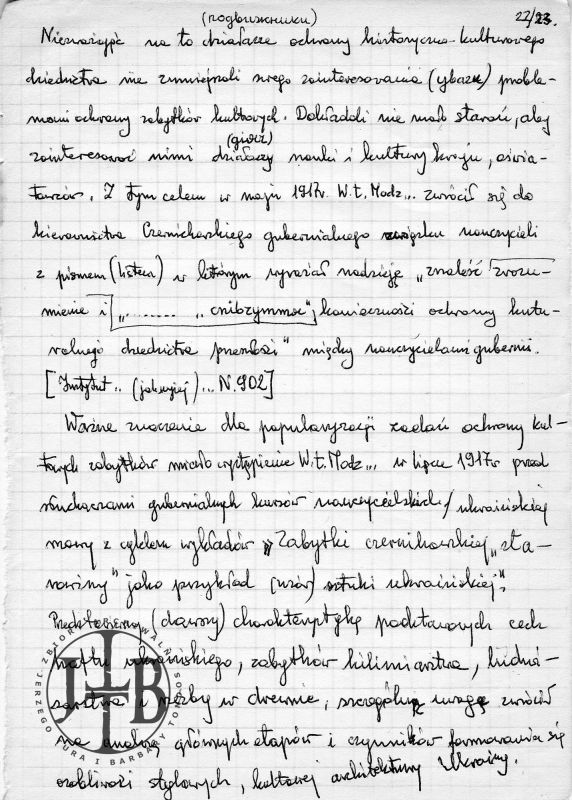 (подвижники) 22/23.
Nieważąjąc na to działacze ochrony historyczno-kulturowego
dziedzictwa nie zmniejszali swego zainteresowania (увагу) proble-
mami ochrony zabytków kultowych. Dokładali nie mało starań, aby
(діячі)
zainteresować nimi działaczy nauki i kultury kraju, oświa-
towców. Z tym celem w maju 1917r. W.t. Modz... zwrócił się do
kierownictwa Czernichowskiego gubernialnego związku nauczycieli
z pismem (listem) w którym wyrażał nadzieję "znaleść zrozu-
mienie i „........ „ співзумтя" konieczności ochrony kultu-
ralnego dziedzictwa przeszłości" między nauczycielami gubernii.
[Instytut .. (jak wyżej) ... N. 902]
Ważne znaczenie dla popularyzacji zadań ochrony kul-
towych zabytków miało wystąpienie W.t. Modz... w lipcu 1917r przed
słuchaczami gubernialnych kursów nauczycielskich / ukraińskiej
mowy z cyklem wykładów „Zabytki czernihowskiej „sta-
rowiny" jako przykład (wzór) sztuki ukraińskiej".
(dawszy) charakterystykę podstawowych cech
haftu ukraińskiego, zabytków kilimiarstwa, ludwi-
sarstwa i rzeźby w drewnie, szczególną uwagę zwrócił
na analizę głównych etapów i czynników formowania się
osobliwości stylowych, kultowej architektury Ukrainy.
ZBIORY
JERZEGO TUR I BARBARY
JTB